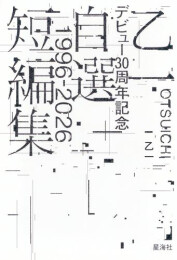 乙一
デビュー30周年記念
自選
1996-2026
短編集
OTSUICHI
星海社